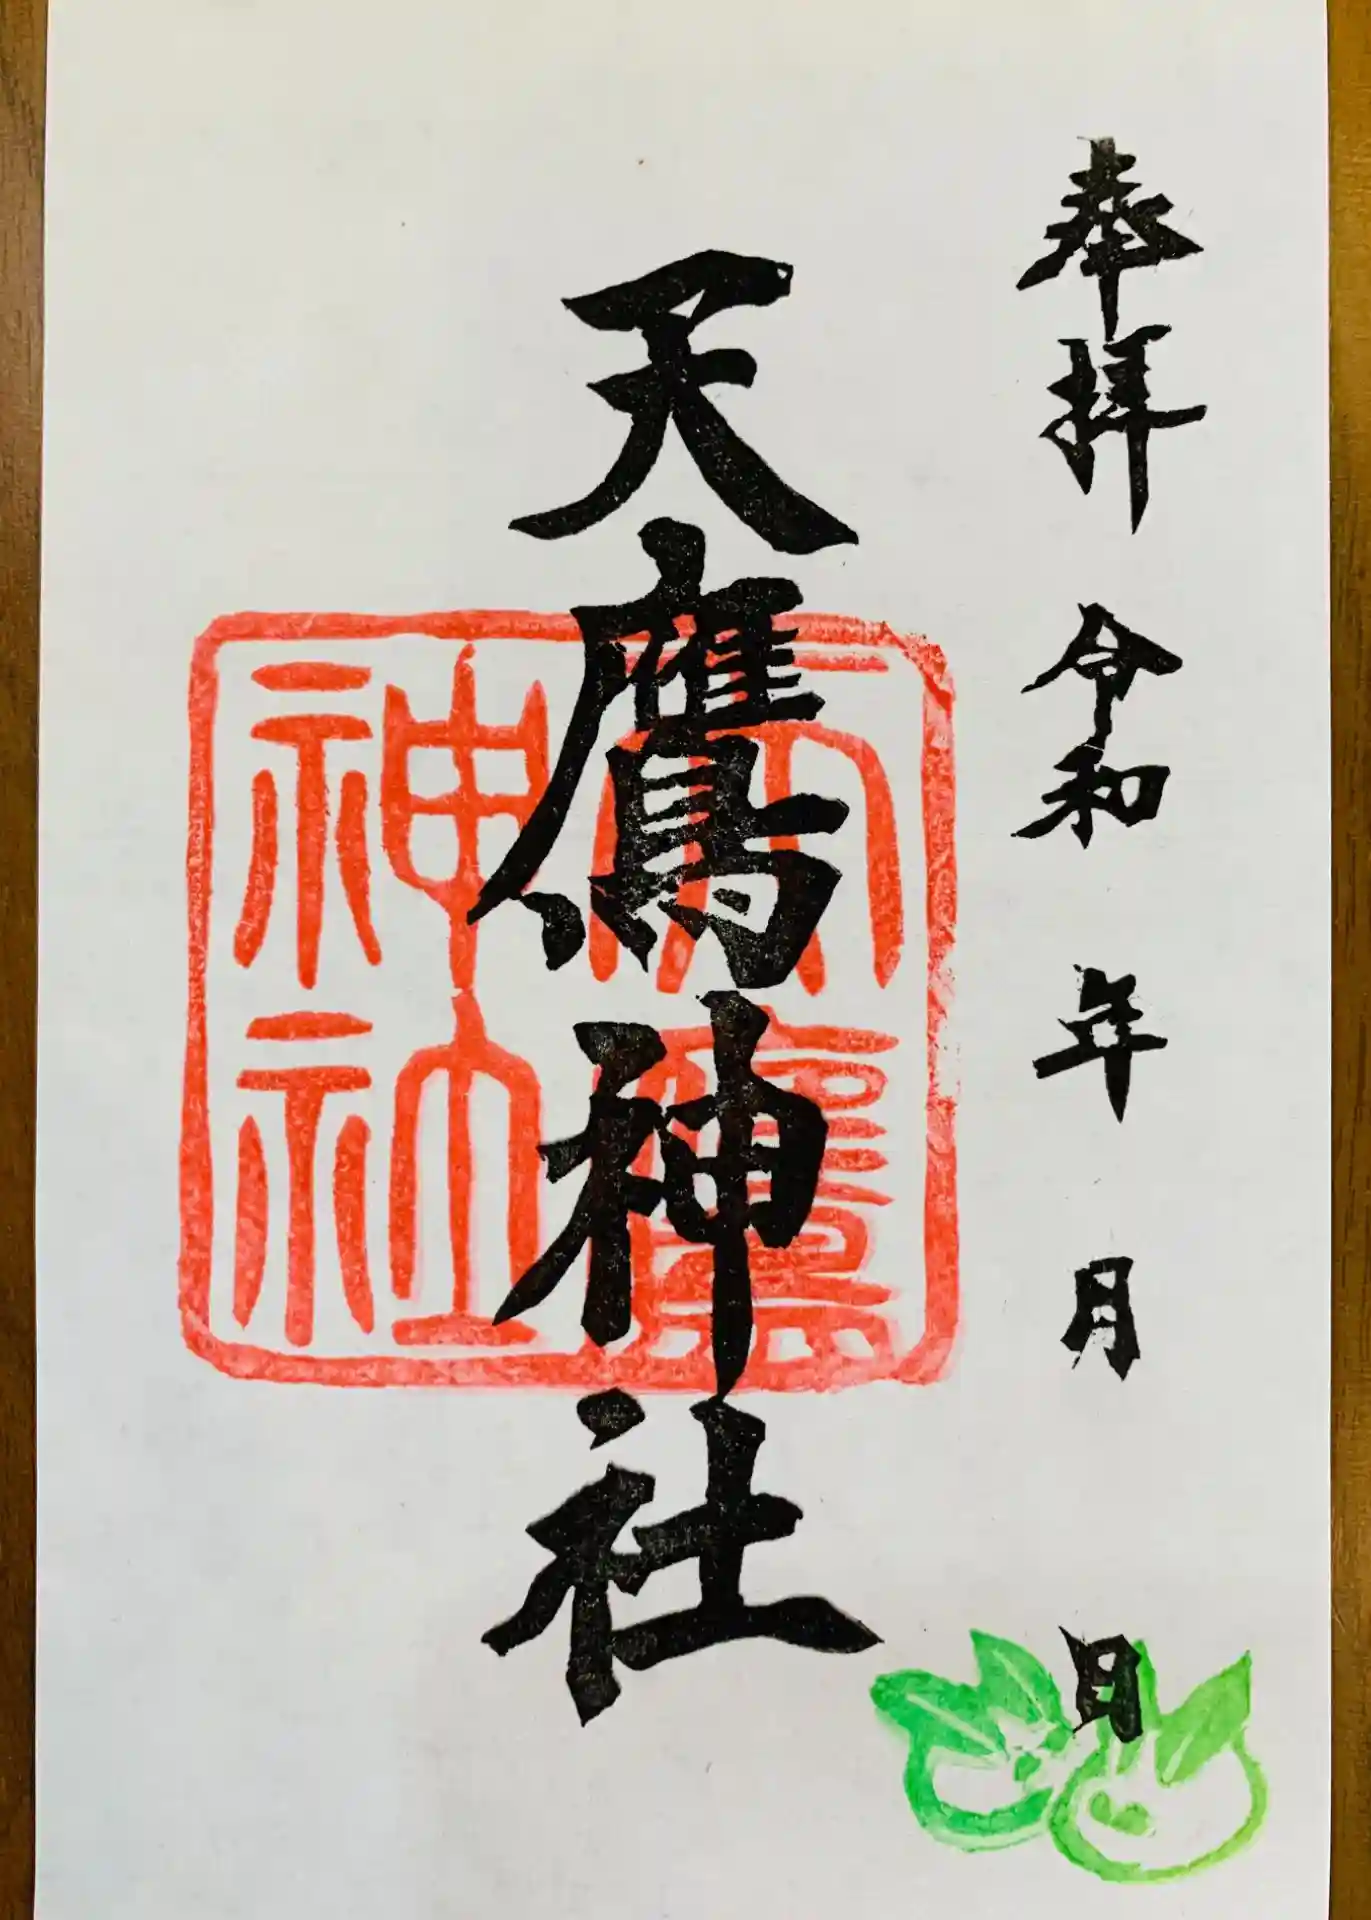 奉拝 令和 年 月 日
天鷹神社
天鷹
神社